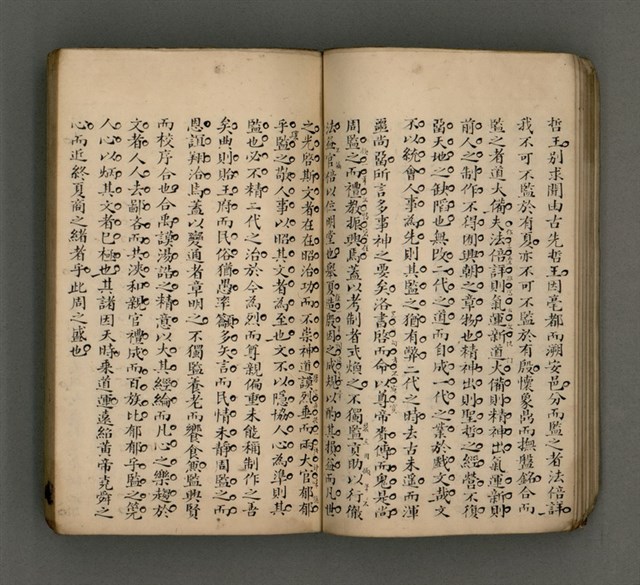 哲王別求聞由古先哲王因亳都而溯安邑分而監之者法倍詳
我不可不監於有夏亦不可不監於有殷懷象禹而撫盤銘合而
監之者道大備夫法倍詳則氣運新道大備則精神出氣運新則
前人之制作不得囿興朝之章物也精神出則聖哲之經營不復
留天地之缺陷也無改二代之道而自成一代之業於戲文哉文
不以統會人事為先則其監之猶有弊二代之時去古未遥而渾
噩尚留所言多事神之要矣洛書啓而命以尊帝賚傳而鬼是尚
周監之而禮教振興焉蓋以考制者式煩之不獨監貢助以行徹
法
之光啓斯文者在在昭治功而不崇神道謨烈垂而兩大官郁郁
乎監之敬人事以昭其文者為至也文不以隱協人心為準則其
監也必不精二代之治於今為烈而尊親偏重未能稱制作之吾
矣曲則貽王府而民俗猶愚率籲多矢言而民情未靜周監之而
恩誼辨洽焉蓋以變通者章明之不獨監養老而饗食兼監興賢
而校序合也合禹謨湯誥之精意以大其經綸而凡心之樂趨於
文者人人去鄙吝而共浹和親官禮成而百族比郁郁乎監之筦
人心以炳其文者已極也其諸因天時乘道運遠紹黃帝堯舜之
心而近終夏商之緒者乎此周之盛也